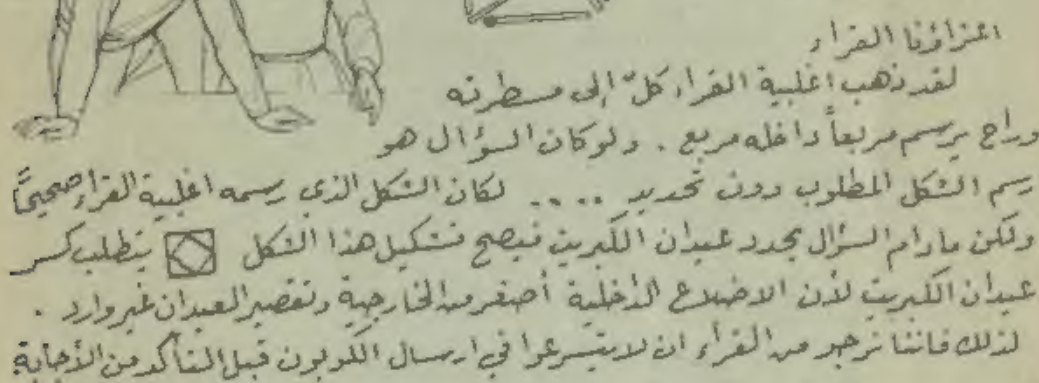 اعزاؤنا القراء
لقد ذهب اغلبية القراء كلّ إلى مسطرته
وراح يرسم مربعاً داخله مربع . ولو كان السؤال هو
رسم الشكل المطلوب دون تحديد .... لكان الشكل الذي رسمه اغلبية القراء صحيحًا
ولكن مادام السؤال يحدد عيدان الكبريت فيصبح تشكيل هذا الشكل يتطلب كسر
عيدان الكبريت لأن الاضلاع الداخلية أصغر من الخارجية وتقصير العيدان غير وارد .
لذلك فاننا نرجو من القراء ان لا يتسرعوا في ارسال الكوبون قبل التأكد من الأجابة